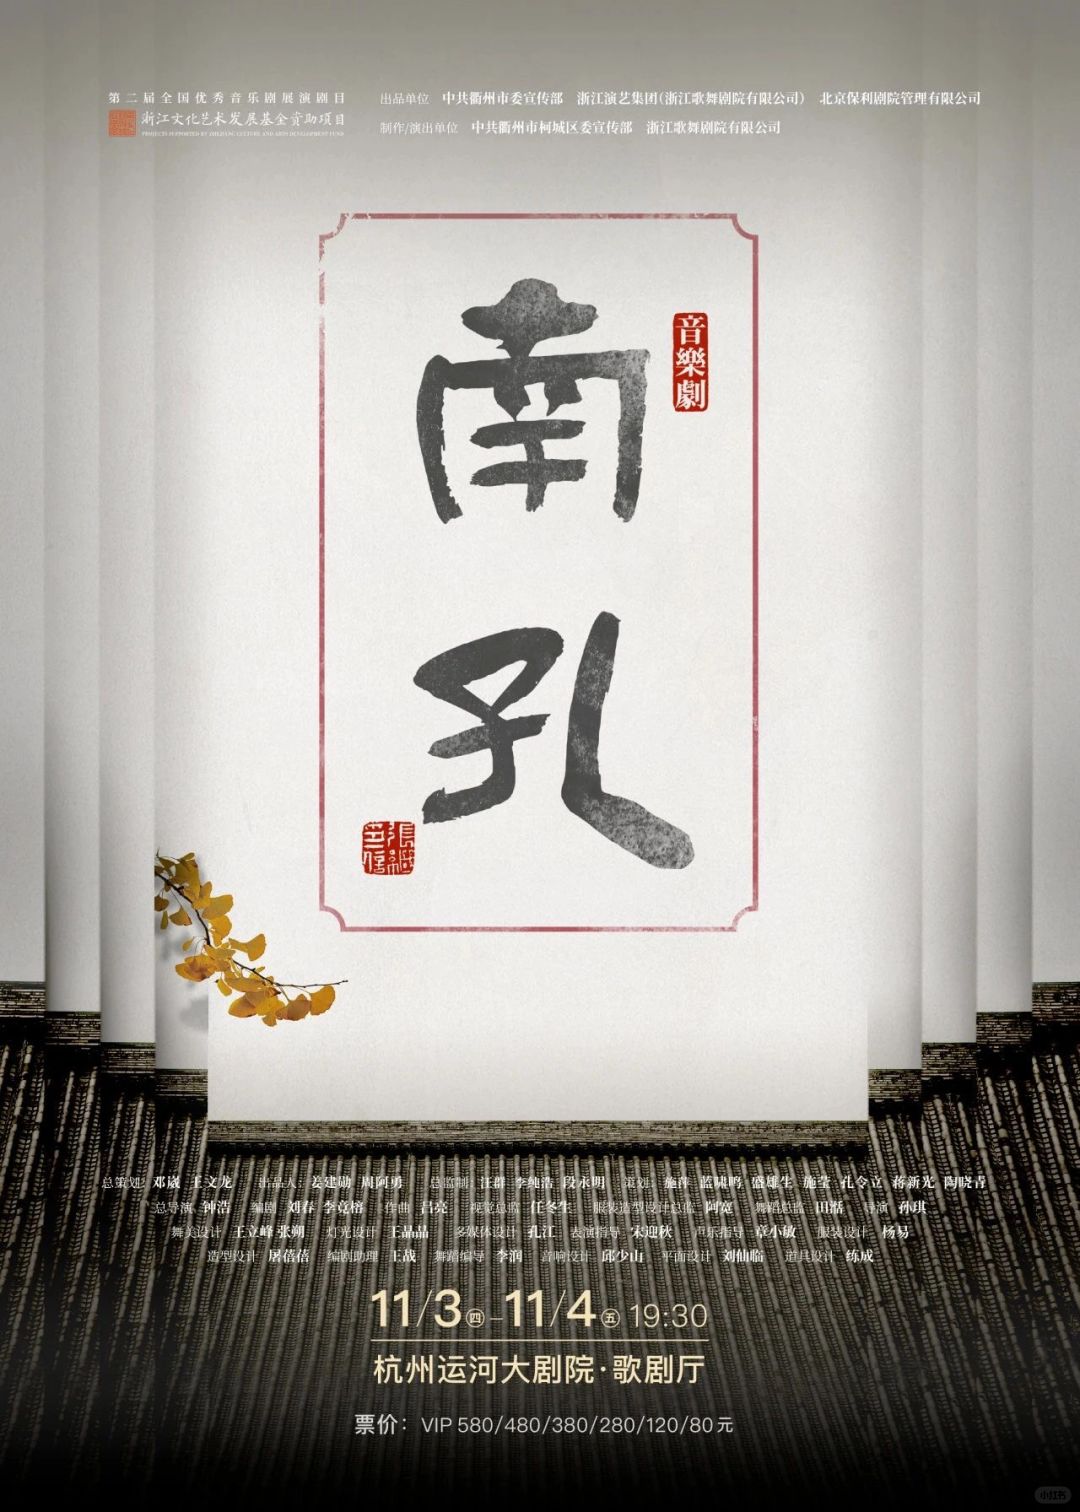 第二届全国优秀音乐剧展演剧目
浙江文化艺术发展基金资助项目
PROJECTS SUPPORTED BY ZHEJIANG CULTURE AND ARTS DEVELOPMENT FUND
出品单位 中共衢州市委宣传部 浙江演艺集团(浙江歌舞剧院有限公司) 北京保利剧院管理有限公司
制作/演出单位 中共衢州市柯城区委宣传部 浙江歌舞剧院有限公司
音樂劇
南孔
总策划: 邓崴 王文龙 出品人: 姜建勋 周阿勇 总监制: 汪群 李纯浩 段永明 策划: 施萍 蓝啸鸣 盛雄生 施莹 孔令立 蒋新光 陶晓青
总导演 钟浩 编剧 刘春 李竞榕 作曲 吕亮 视觉总监 任冬生 服装造型设计总监 阿宽 舞蹈总监 田湉 导演 孙琪
舞美设计 王立峰 张朔 灯光设计 王晶晶 多媒体设计 孔江 表演指导 宋迎秋 声乐指导 章小敏 服装设计 杨易
造型设计 屠蓓蓓 编剧助理 王战 舞蹈编导 李润 音响设计 邱少山 平面设计 刘仙临 道具设计 练成
11/3㊃–11/4㊄ 19:30
杭州运河大剧院·歌剧厅
票价：VIP 580/480/380/280/120/80元
小红书